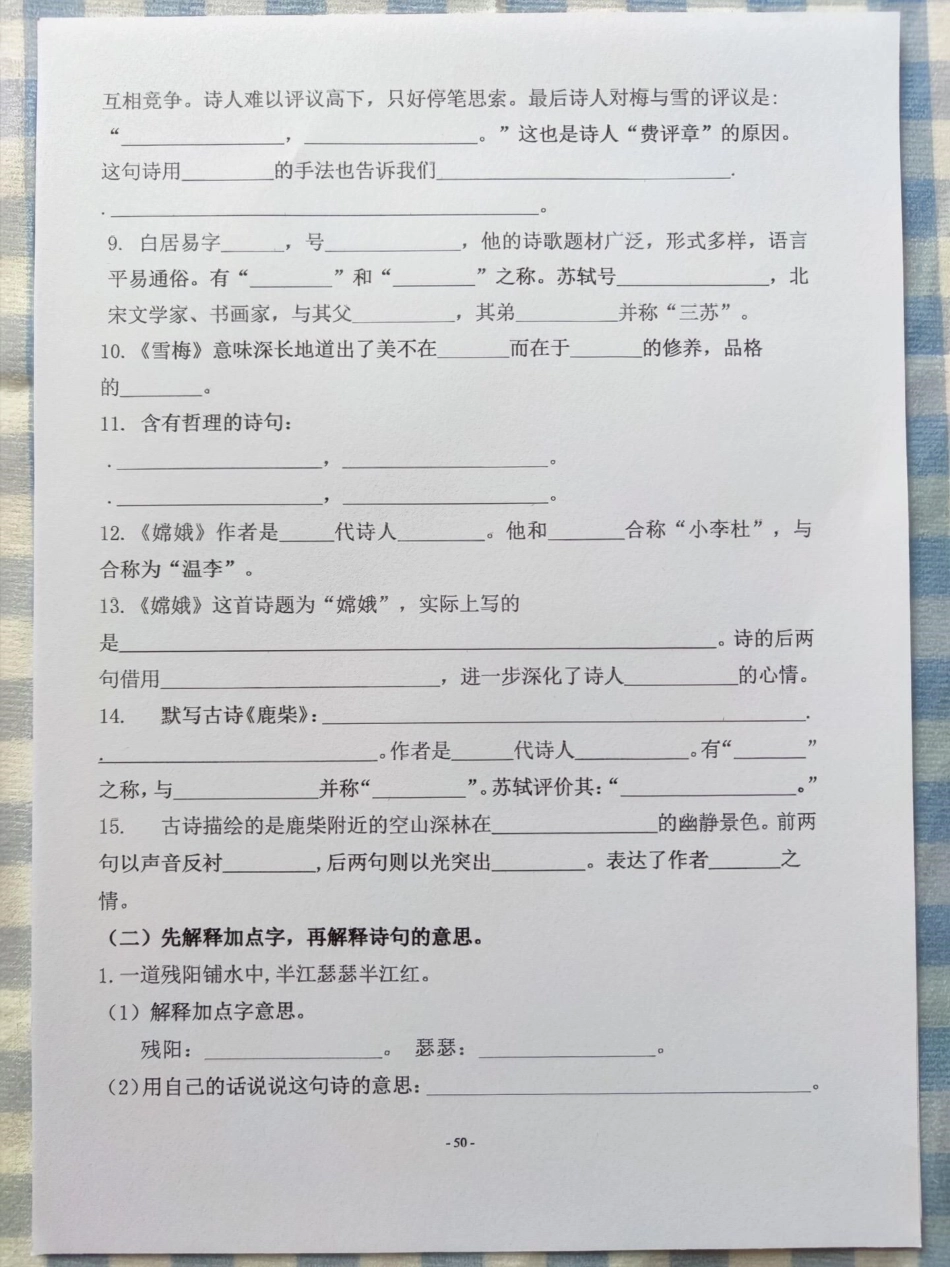 互相竞争。诗人难以评议高下，只好停笔思索。最后诗人对梅与雪的评议是：
“________________，_________________。”这也是诗人“费评章”的原因。
这句诗用_________的手法也告诉我们____________________________.
._________________________________________。
9. 白居易字______，号_____________，他的诗歌题材广泛，形式多样，语言
平易通俗。有“________”和“________”之称。苏轼号_______________，北
宋文学家、书画家，与其父__________，其弟__________并称“三苏”。
10.《雪梅》意味深长地道出了美不在_______而在于_______的修养，品格
的________。
11. 含有哲理的诗句：
.____________________，____________________。
.____________________，____________________。
12.《嫦娥》作者是_____代诗人________。他和_______合称“小李杜”，与
合称为“温李”。
13.《嫦娥》这首诗题为“嫦娥”，实际上写的
是__________________________________________________________。诗的后两
句借用___________________________，进一步深化了诗人___________的心情。
14. 默写古诗《鹿柴》：_______________________________________________.
.___________________________。作者是______代诗人___________。有“_______”
之称，与______________并称“_________”。苏轼评价其：“_________________。”
15. 古诗描绘的是鹿柴附近的空山深林在________________的幽静景色。前两
句以声音反衬_________,后两句则以光突出_________。表达了作者_______之
情。
（二）先解释加点字，再解释诗句的意思。
1.一道残阳铺水中,半江瑟瑟半江红。
（1）解释加点字意思。
残阳：_________________。 瑟瑟：_________________。
（2）用自己的话说说这句诗的意思：_____________________________________。
- 50 -